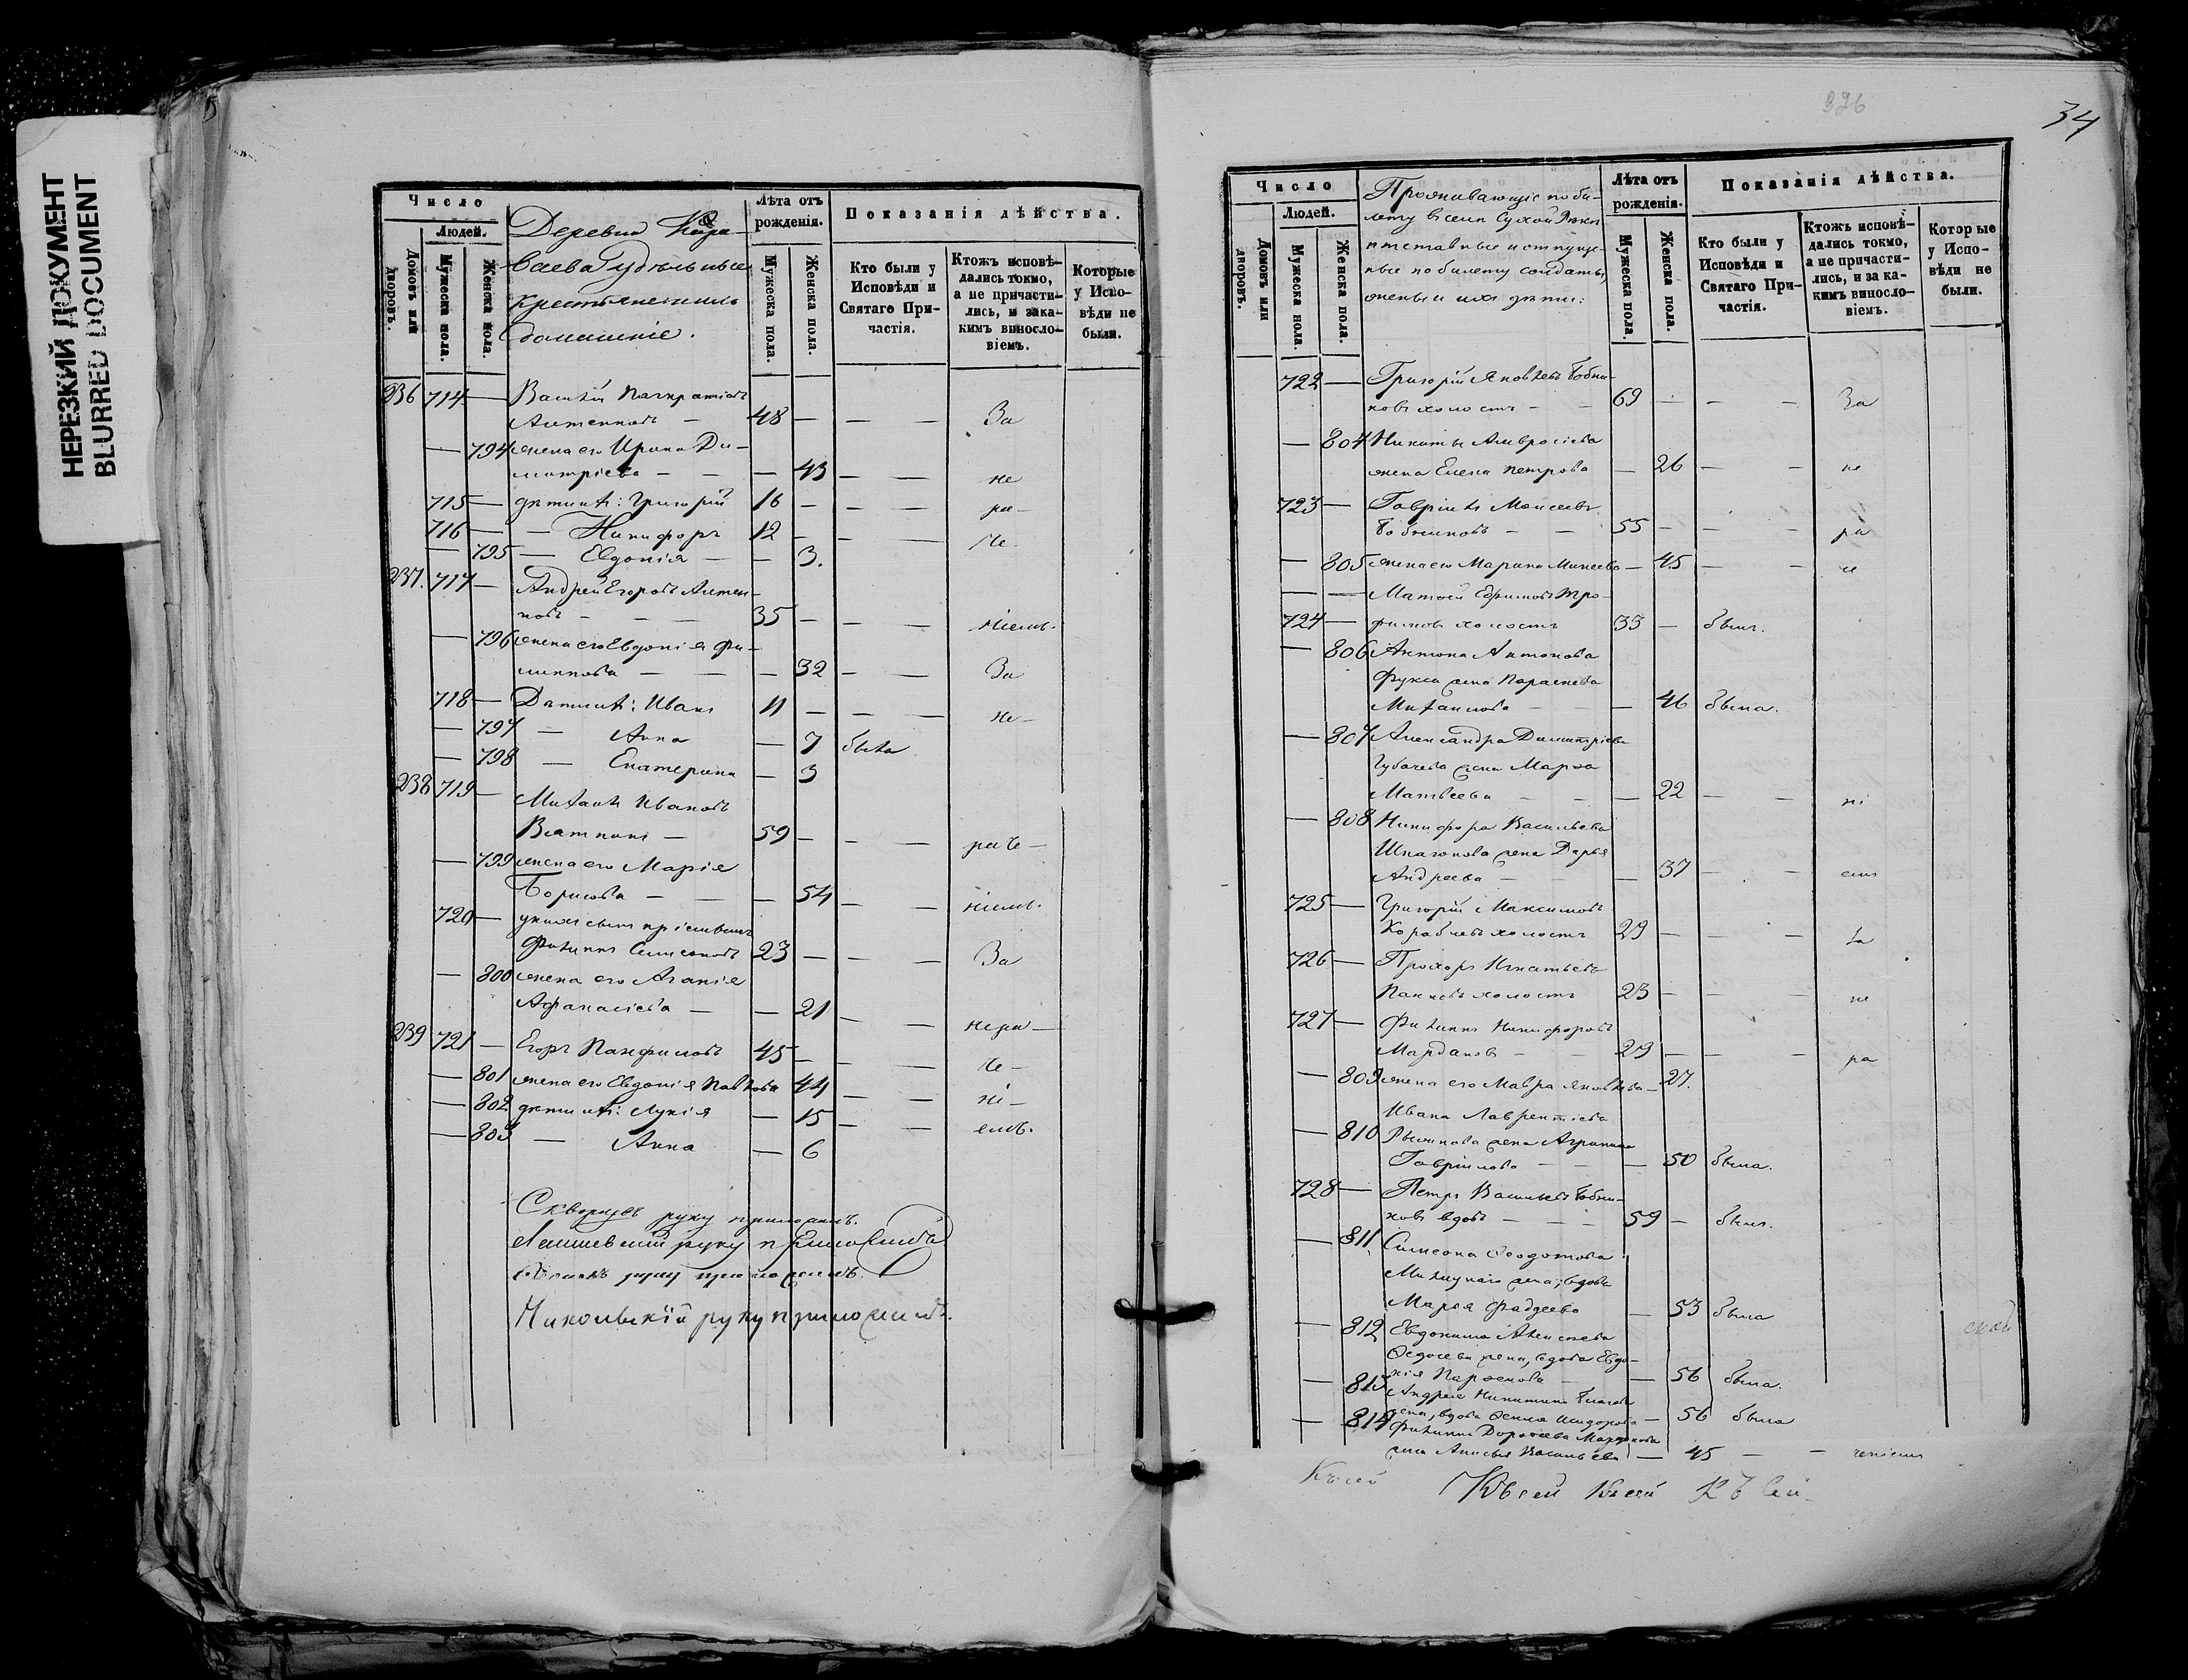 НЕРЕЗКИЙ ДОКУМЕНТ
BLURRED DOCUMENT
Число
Людей.
Домовъ или дворовъ.
Мужеска пола.
Женска пола.
Деревня
удѣльные
крестьяне и ихъ
домашніе.
Лѣта отъ рожденія.
Мужеска пола.
Женска пола.
Показанія дѣйства.
Кто были у Исповѣди и Святаго Причастія.
Ктожъ исповѣдались токмо, а не причастились, и за какимъ винословіемъ.
Которые у Исповѣди не были.
236 714 — Василій Панкратіевъ
— 48 — — — За
— 794 жена его Ирина Ди-
митріева — — — 43 — — не
715 — дѣти ихъ: Григорій 16 — — — ра-
716 — — Никифоръ 12 — — — че-
— 795 — Евдокія — — 3.
237. 717 — Андрей Егоровъ
новъ — — — 35 — — — ніемъ.
— 796 жена его Евдокія Фи-
липпова — — — 32 — — За
718 — Дѣти ихъ: Иванъ 11 — — — не-
— 797 — Анна — 7 была
— 798 — Екатерина — 3
238 719 — Михаилъ Ивановъ
— 59 — — — раче-
— 799 жена его Марія
Борисова — — — 54 — — ніемъ.
720 — у нихъ сынъ пріемышъ
Филиппъ Симеоновъ 23 — — — За
— 800 жена его Агапія
Афанасіева — — 21 — — нера-
239 721 — Егоръ Панфиловъ 45 — — — че-
— 801 жена его Евдокія Павлова 44 — — ні-
— 802 дѣти ихъ: Лукія — 15 — — емъ.
— 803 — Анна — 6
Скворцовъ руку приложилъ.
руку приложилъ
руку приложилъ.
Никольскій руку приложилъ.
326
34
Число
Людей.
Домовъ или дворовъ.
Мужеска пола.
Женска пола.
Проживающіе по би-
лету въ селѣ Сухой Рѣчкѣ
отставные и отпуще-
ные по билету солдаты,
жены и ихъ дѣти:
Лѣта отъ рожденія.
Мужеска пола.
Женска пола.
Показанія дѣйства.
Кто были у Исповѣди и Святаго Причастія.
Ктожъ исповѣдались токмо, а не причастились, и за какимъ винословіемъ.
Которые у Исповѣди не были.
722 — Григорій Яковлевъ Бобыш-
ковъ холостъ — — 69 — — — За
— 804 Никиты Амвросіева
жена Елена Петрова — 26 — — не
723 — Гавріилъ Моисеевъ
— — 55 — — — ра
— 805 жена его Марина Минеева — 45 — — че
— — Матѳей Ефимовъ Тро-
724 — фимовъ холостъ 33 — былъ.
— 806 Антона Антонова
жена Параскева
Михаилова — — — 46 была.
— 807 Александра Димитріева
Губачева жена Марѳа
Матвѣева — — — 22 — — ні
— 808 Никифора Васильева
жена Дарья
Андреева — — — 37 — — емъ
725 — Григорій Максимовъ
Кораблевъ холостъ 29 — — — За
726 — Прохоръ Игнатьевъ
Панковъ холостъ 23 — — — не
727 — Филиппъ Никифоровъ
Мардановъ — — 29 — — — ра
— 809 жена его Мавра Яковлева — 27.
Ивана Лаврентіева
— 810 жена Агрипина
Гавріилова — — — 50 была.
728 — Петръ Васильевъ Бобыш-
ковъ вдовъ — — — 59 — былъ.
— 811 Симеона Ѳеодотова
жена, вдова
Марѳа Фаддеева — 53 была
— 812 Евдокима Алексѣева
Ѳедосеева жена, вдова Евдо-
кія Парѳенова — — 56 была.
— 813 Андрея Никитина
жена, вдова Ѳекла Исидорова — 56 была
— 814 Филиппа Дороѳеева Марданова
жена Анисья Васильева — 45 — — ченіемъ
Къ сей Къ сей Къ сей Къ сей